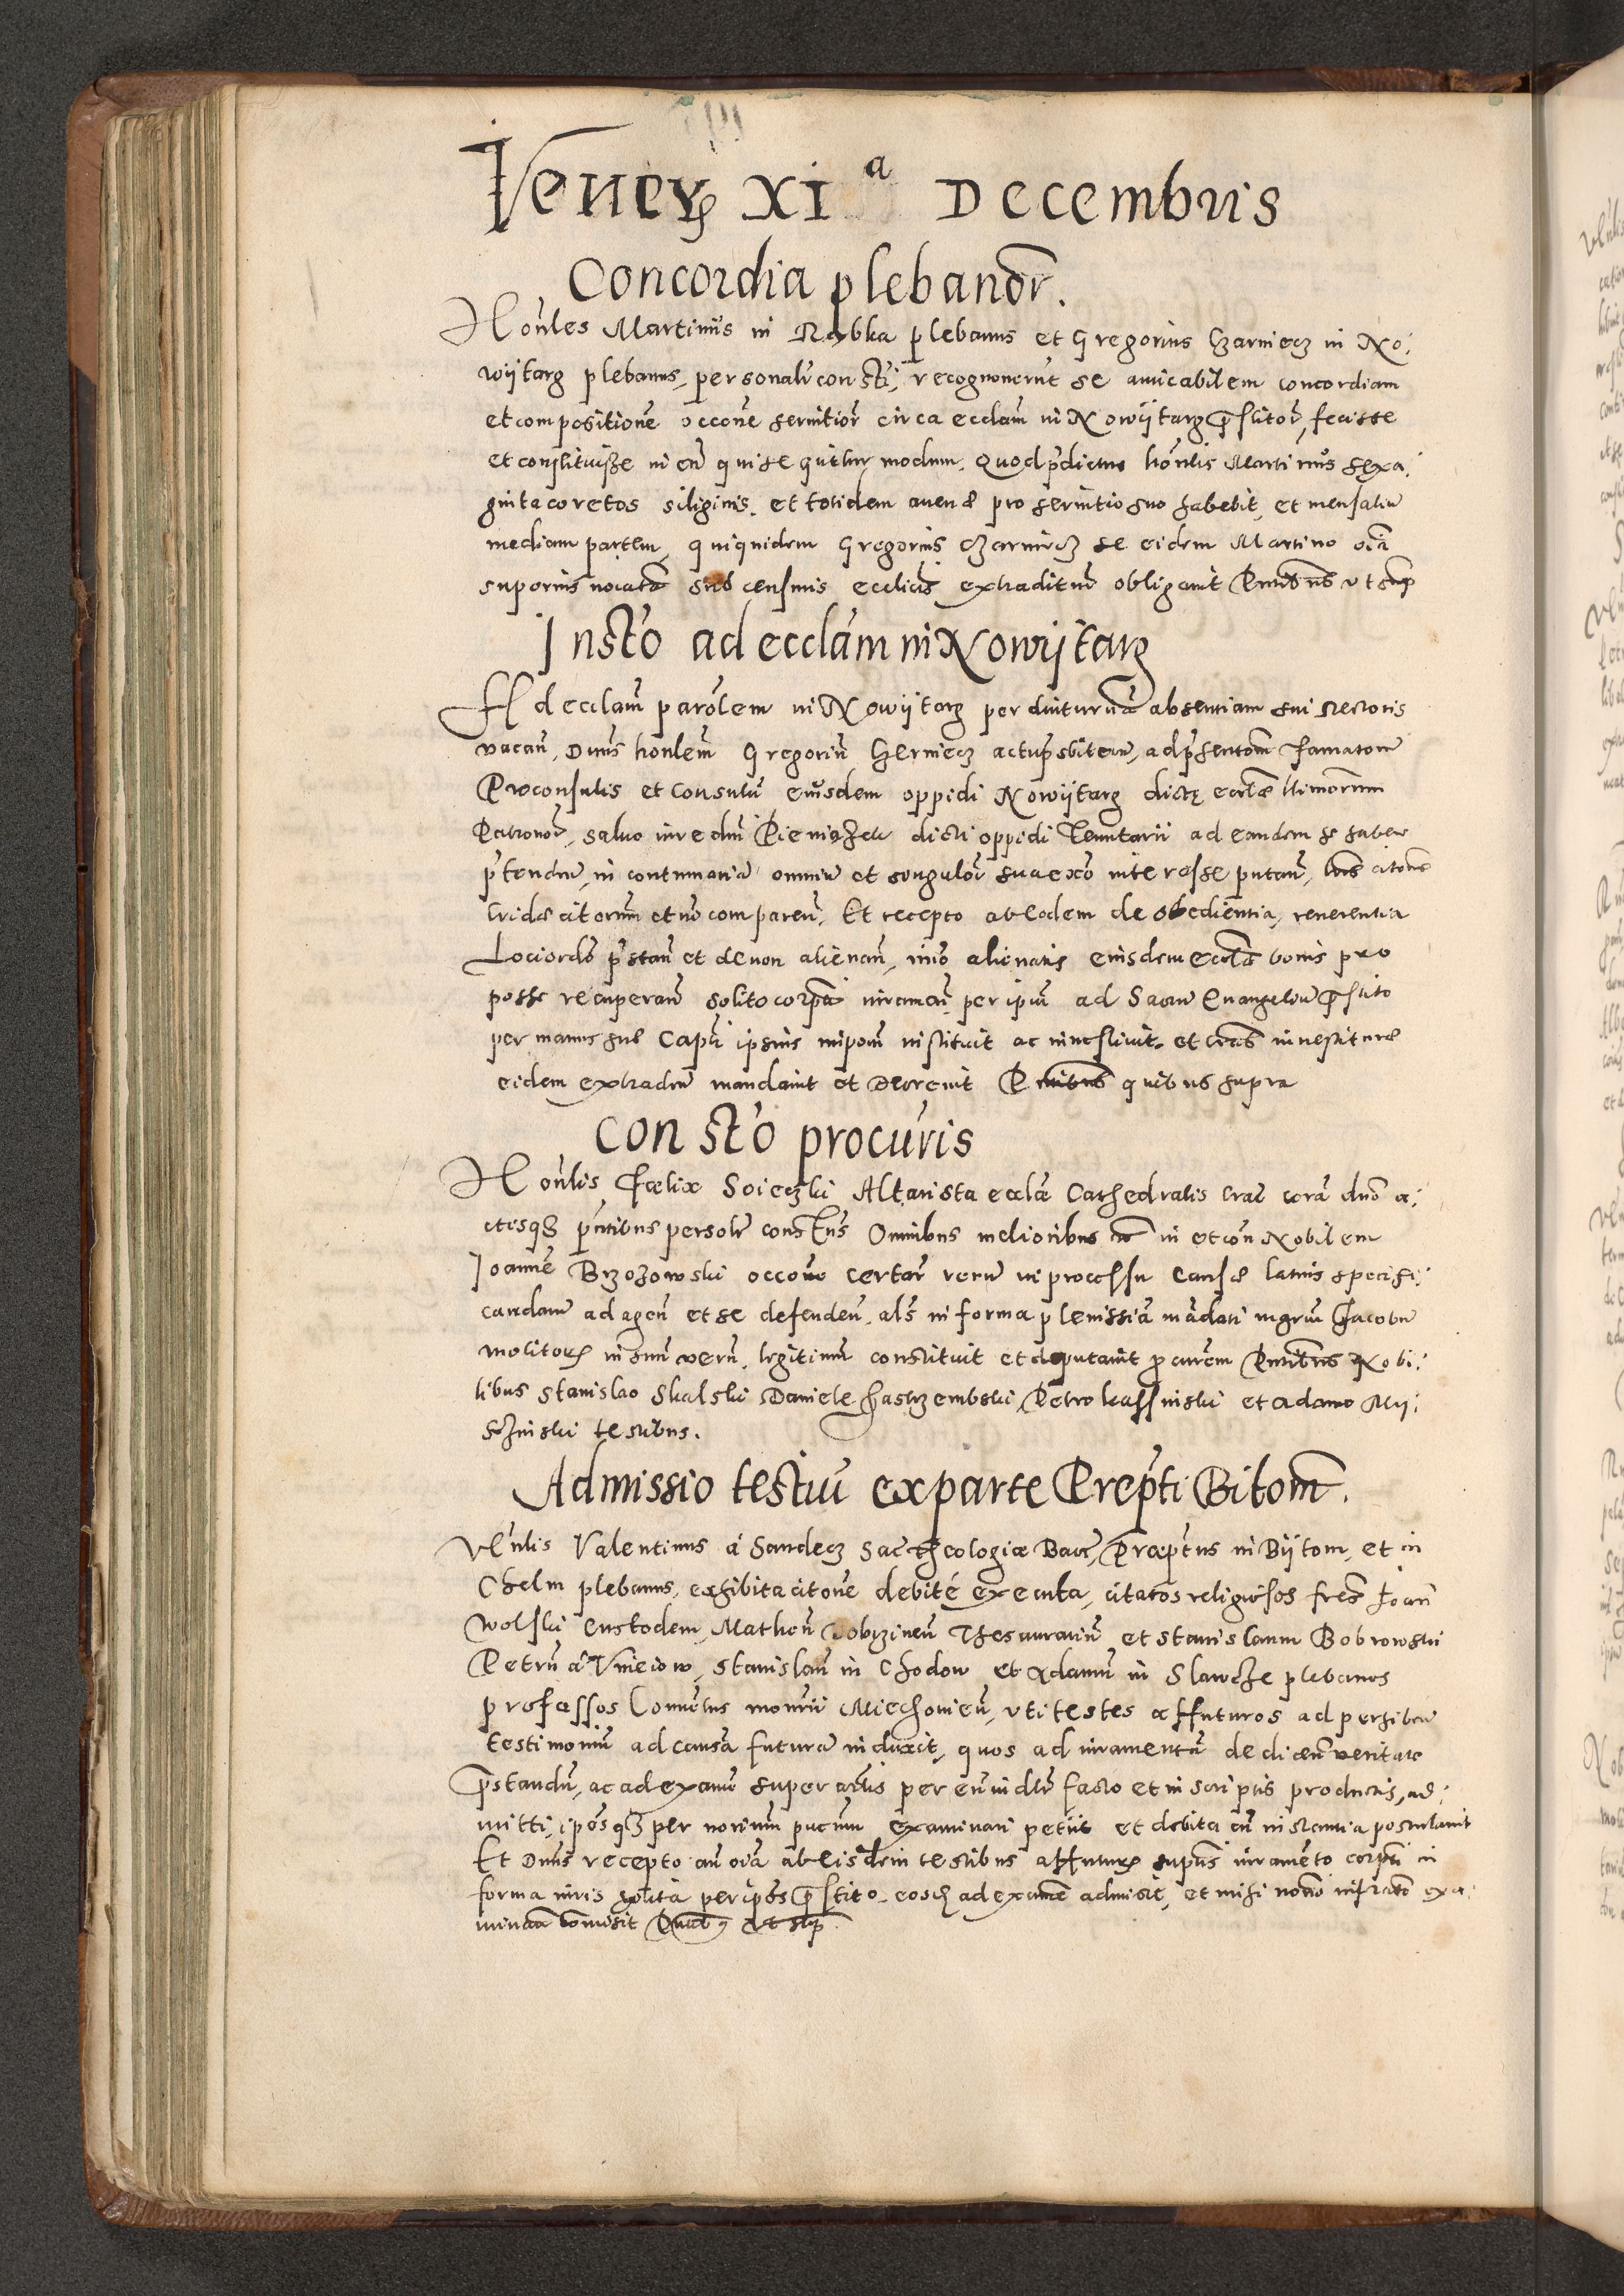 Venerꝝ XIª Decembris
Concordia plebanor̃.
Honles Martinus in Rabka plebanus et Gregorius Czarniecz in No:
wijtarg plebanus, personalr̃ consti, recognouerũt se amicabilem concordiam
et compositionẽ occõne seruitior̃ circa ecclam̃ in Nowijtarg p̃stitor̃, fecisse
et constituisse in eũ qui sequitur modum. Quod p̃dictus honlis Martinus sexa:
ginta coretos siliginis, et totidem auenæ pro seruitio suo habebit, et mensaliũ
mediam partem, quiquidem Gregorius Czarniecz se eidem Martino oĩa
superius nocata sub censuris ecclicis extraditur̃ obligauit Pñtibus vt sup̃
Insto ad ecclam in Nowijtarg
Ad ecclam̃ parõlem in Nowijtarg per diuturnã absentiam sui rectoris
vacan̄, Dnus honlem̃ Gregoriũ Czerniecz actu p̃sbiterũ, ad p̃sentõm famatorũ
Proconsulis et Consulũ eiusdem oppidi Nowijtarg dictę ecclæ llimorum
Patronor̃, saluo iure dni Pieniążek dicti oppidi Tenutarii ad eandem se habere
p̃tenden̄, in contumaciã omniũ et singulor̃ sua exõ interesse putan̄, citõnis
citorum et nõ comparen̄, Et recepto ab eodem de obedientia, reuerentia
Lociordõ p̃stan̄ et de non alienan̄, imo alienatis eiusdem ecclæ bonis pro
posse recuperan̄ solito corp̃li iuramen̄ per ipsũ ad Sacra Euangelia p̃stito
per manus suæ Capti ipsius impoñ instituit ac inuestiuit, et inuestituræ
eidem extraden̄ mandauit et Decreuit Pñtibus quibus supra
Consto procuris
Honlis Foelix Soieczki Altarista ecclæ Cathedralis Crac̃ corã dnõ a:
ctisq₃ pñtibus persolr̃ constus Omnibus melioribus in et cõn Nobilem
Joannẽ Brzozowski occõne certar̃ rerũ in processu causæ latius specifi:
candarũ ad agen̄ et se defenden̄, als̃ in forma plenissiã mãdati mgrũ Jacobũ
molitoris in suũ verũ, legitimũ constituit et deputauit p̃curem̃ Pñtibus Nobi:
libus Stanislao Skalski Daniele Jastrzembski, Petro kassinski et Adamo Mij:
schinski testibus.
Admissio testiũ ex parte Prep̃ti Bitom̃.
Venlis Valentinus à Sandecz Sac theologiæ Bacc̃, Præp̃tus in Bijtom, et in
Chelm plebanus, exhibita citõne debitè executa, citatos religiosos fres Joan̄
Wolski Custodem, Mathiã Dobrzinen̄ Thesaurariũ et Stanislaum Bobrowski
Petrũ à Vnieiow, Stanislaũ in Chodow et Adamũ in Slawcze plebanos
professos Conuẽtus monrii Miechouien̄, vti testes affuturos ad perhiben̄
testimoniũ ad causã futurã induxit, quos ad iuramentũ de dicen̄ veritate
p̃standũ, ac ad examẽ super artlis per eũ in dlr̃ facto et in scriptis productis, ad:
mitti, ipõsq₃ per notariũ publicũ examinari petiit et debita cũ instantia postulauit
Et Dnus recepto an̄ oĩa ab eisdem testibus affuturis suptis iuramẽto corpli in
forma iuris solita per ipsos p̃stito, eosq₃ ad examẽ admisit, et mihi nõrio infrato exa:
minan̄ comisit Pñtib₉ vt sup̃.